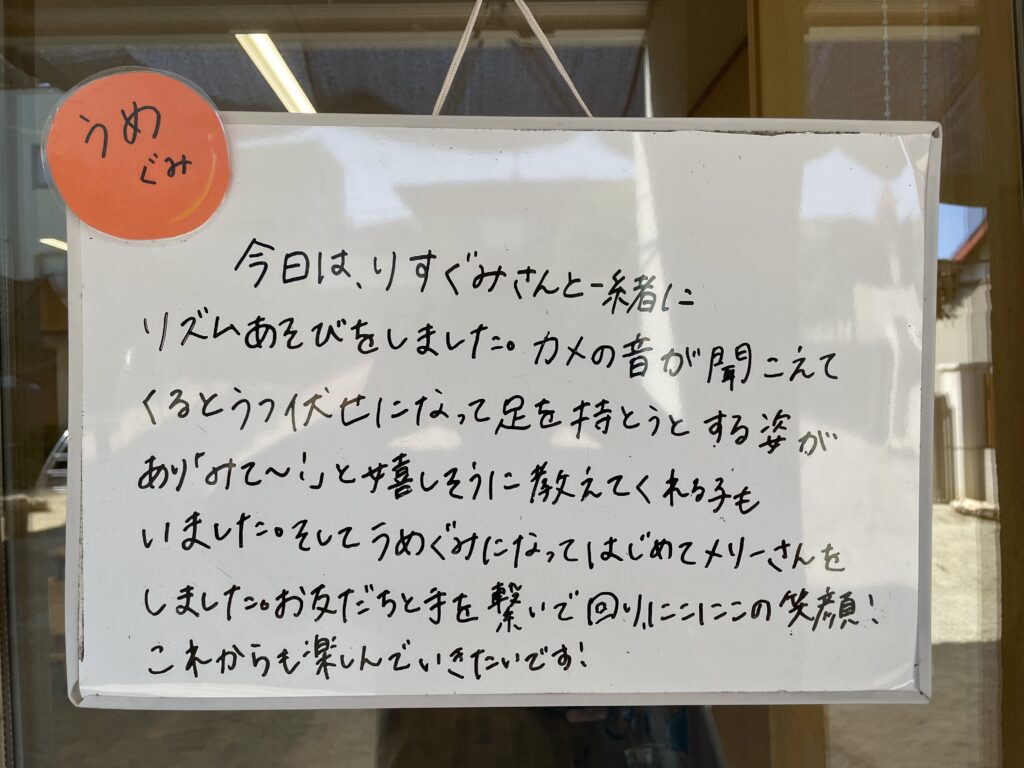 うめ
ぐみ
今日は、りすぐみさんと一緒に
リズムあそびをしました。カメの音が聞こえて
くるとうつ伏せになって足を持とうとする姿が
あり「みて～!」と嬉しそうに教えてくれる子も
いました。そしてうめぐみになってはじめてメリーさんを
しました。お友だちと手を繋いで回り、にこにこの笑顔!
これからも楽しんでいきたいです!